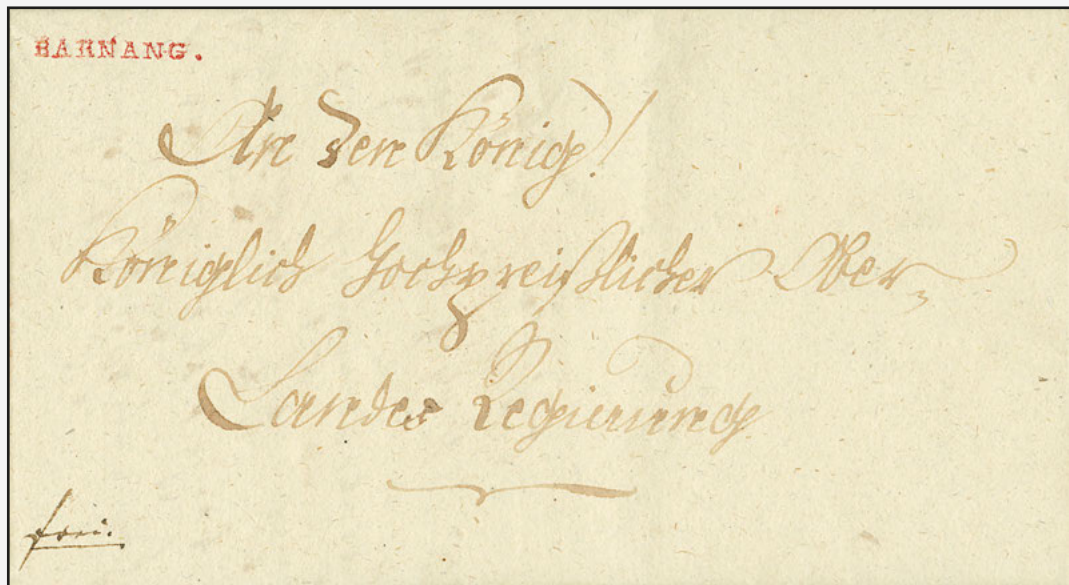 BARNANG.
An den König!
Königlich Hochpreißlicher Ober-
Landes Regierung
frei.